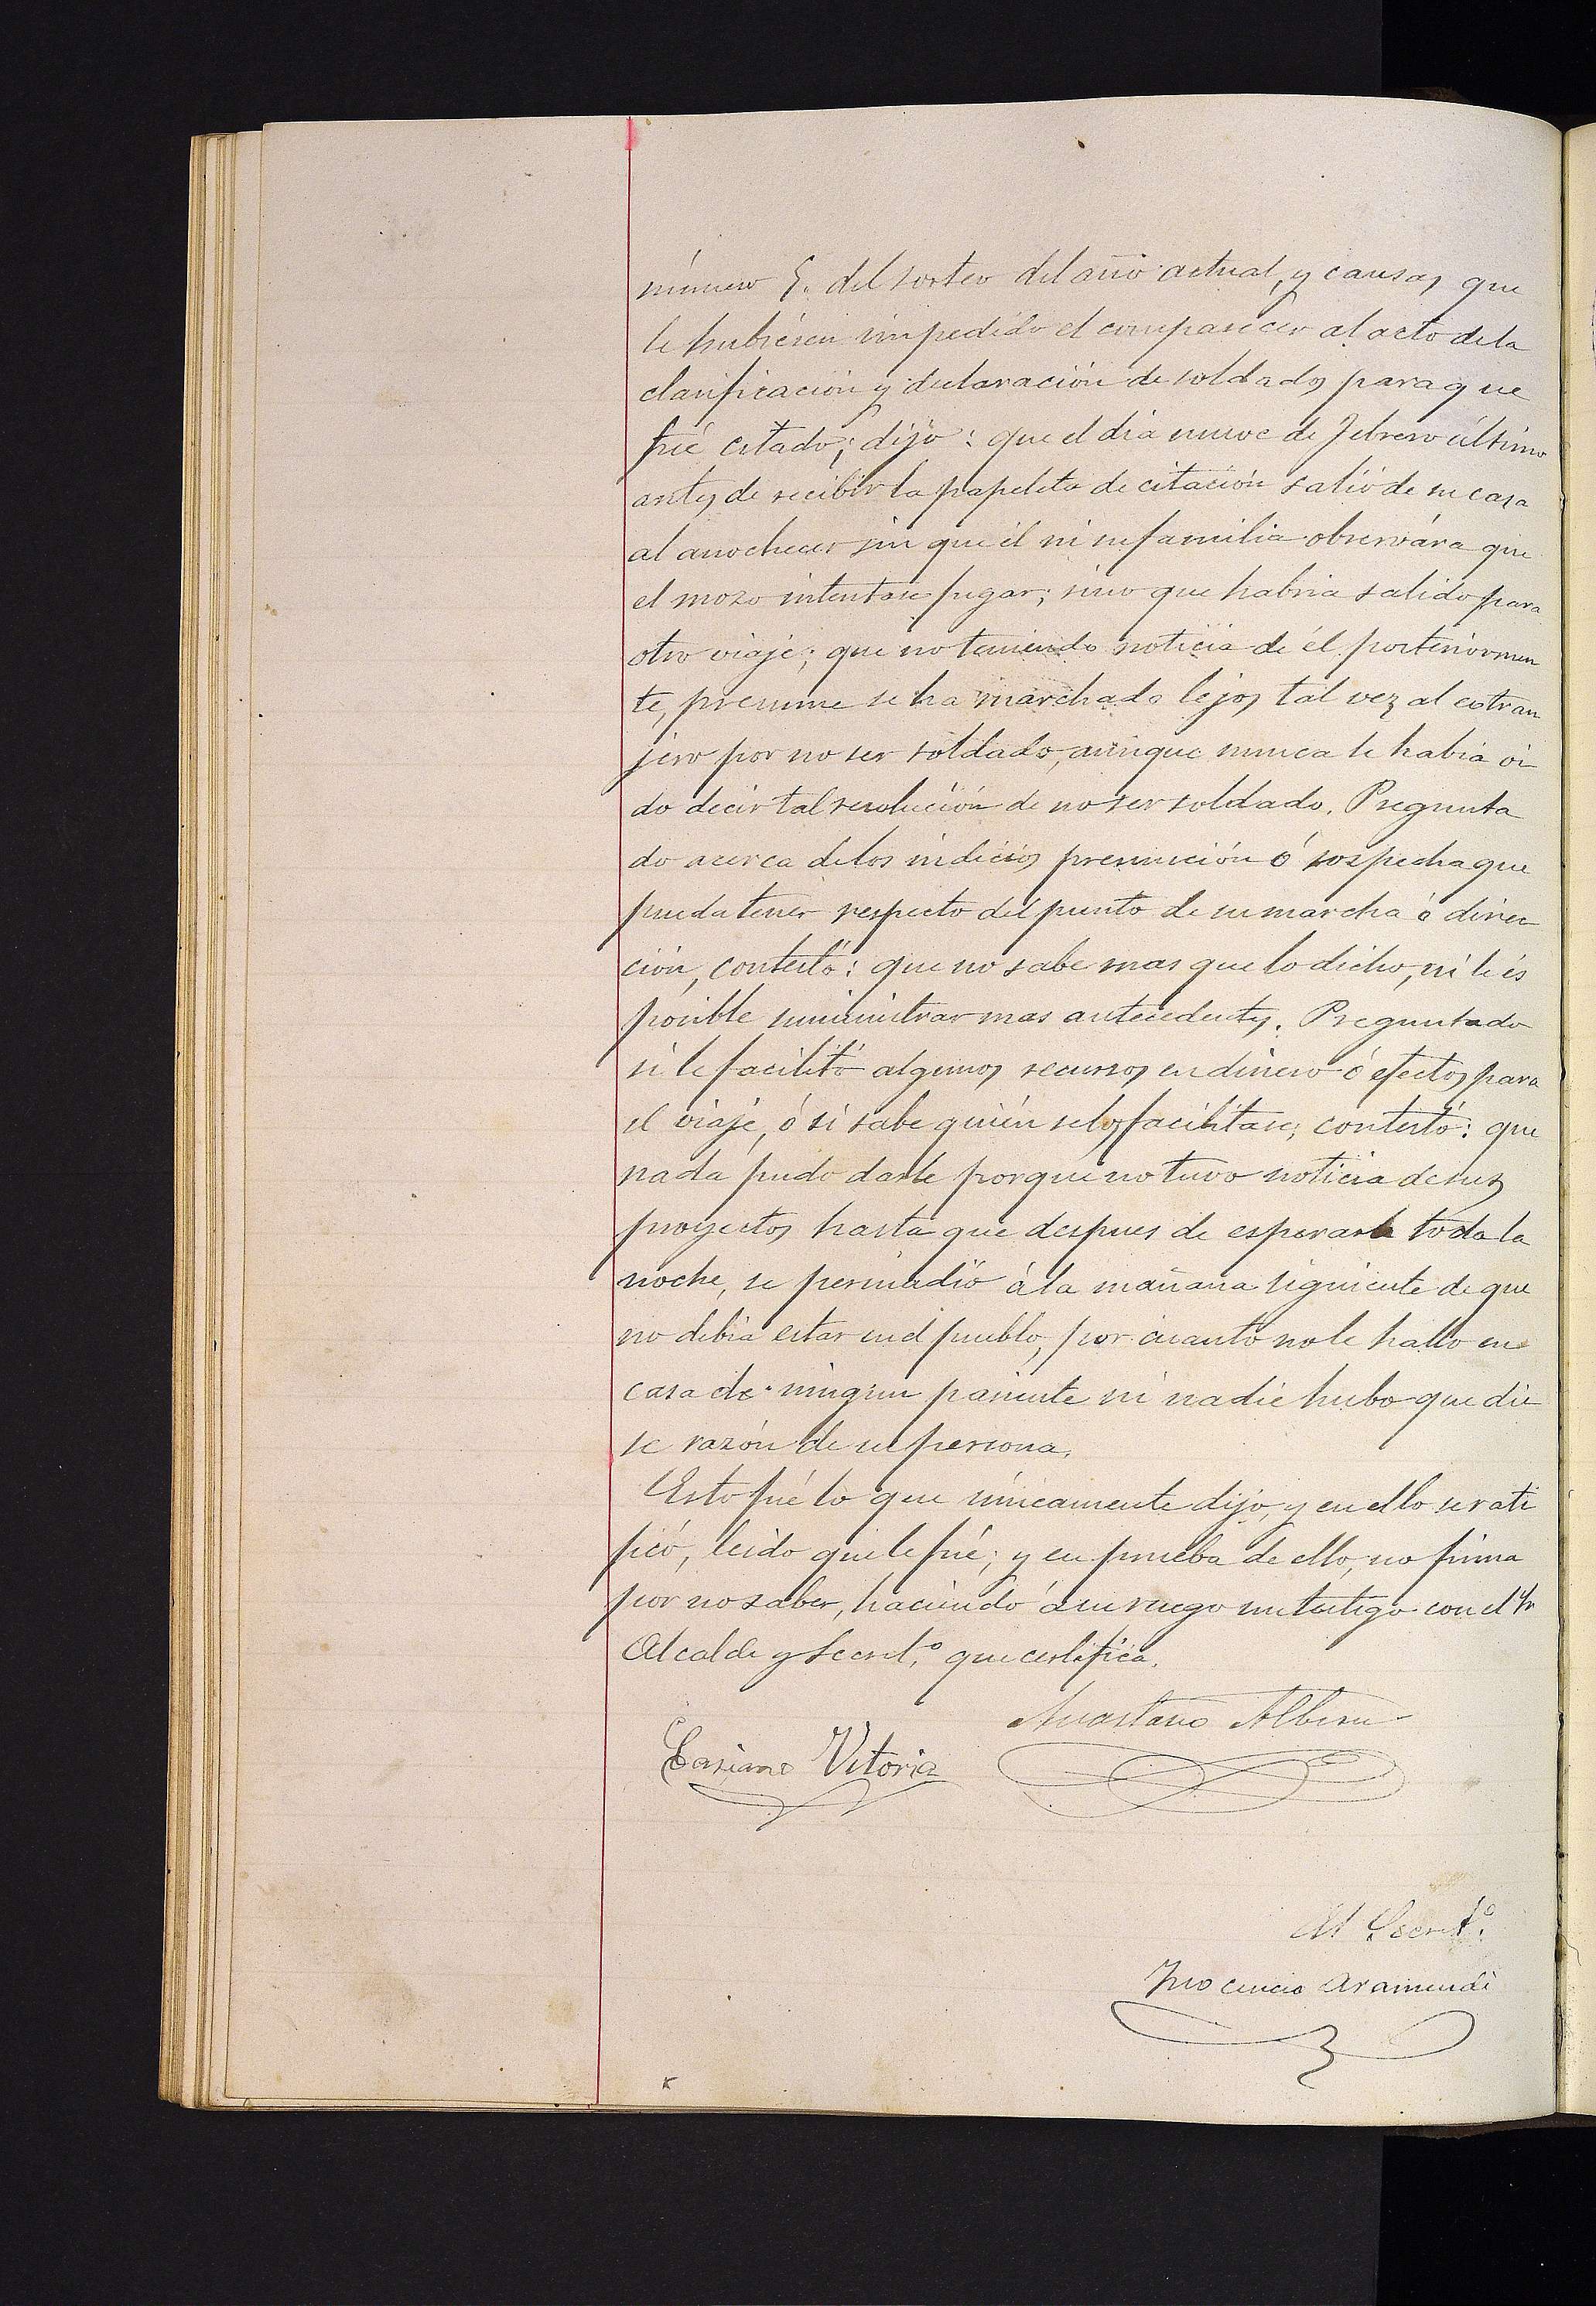 número 5. del sorteo del año actual, y causas que
le hubiésen impedido el comparecer al acto de la
clasificación y declaración de soldados para que
fué citado; dijo: que el dia nueve de Febrero último
antes de recibir la papeleta de citación salió de su casa
al anochecer sin que él ni su familia observára que
el mozo intentase fugar; sino que habria salido para
otro viaje; que no teniendo noticia de él posteriormen
te, presume se ha marchado lejos tal vez al estran
jero por no ser soldado, aunque nunca le habia oi
do decir tal resolución de no ser soldado. Pregunta
do acerca de los indicios presunción ó sospecha que
pueda tener respecto del punto de su marcha ó direc
ción, contestó: que no sabe mas que lo dicho, ni le és
posible suministrar mas antecedentes. Preguntado
si le facilitó algunos recursos en dinero ó efectos para
el viaje, ó si sabe quién selos facilitase; contestó: que
nada pudo darle porque no tuvo noticia de sus
proyectos hasta que despues de esperarle toda la
noche, se persuadió á la mañana siguiente de que
no debia estar en el pueblo, por cuanto no le halló en
casa de ningun pariente ni nadie hubo que die
se razón de su persona.
Esto fué lo que únicamente dijo, y en ello se rati
ficó, leido que le fué; y en prueba de ello, no firma
por no saber, haciendo á su ruego un testigo con el Sr
Alcalde y Secret.º que certifica.
Anastasio Albisu
Casiano Vitoria
El Secret.º
Inocencio Aramendi